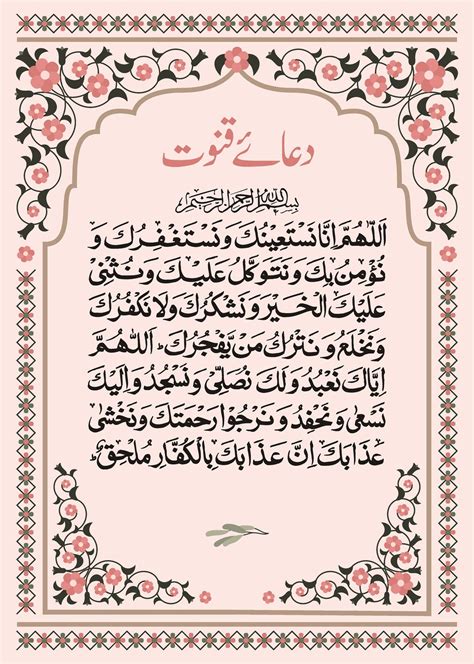 دعائے قنوت
بِسْمِ اللهِ الرَّحْمٰنِ الرَّحِيْمِ
اَللّٰهُمَّ اِنَّا نَسْتَعِيْنُكَ وَ نَسْتَغْفِرُكَ وَ
نُؤْمِنُ بِكَ وَ نَتَوَكَّلُ عَلَيْكَ وَ نُثْنِیْ
عَلَيْكَ الْخَيْرَ وَ نَشْكُرُكَ وَلَا نَكْفُرُكَ
وَ نَخْلَعُ وَ نَتْرُكُ مَنْ يَّفْجُرُكَ ؕ اَللّٰهُمَّ
اِيَّاكَ نَعْبُدُ وَ لَكَ نُصَلِّیْ وَ نَسْجُدُ وَ اِلَيْكَ
نَسْعٰی وَ نَحْفِدُ وَ نَرْجُوْا رَحْمَتَكَ وَ نَخْشٰی
عَذَابَكَ اِنَّ عَذَابَكَ بِالْكُفَّارِ مُلْحِقٌ ؕ